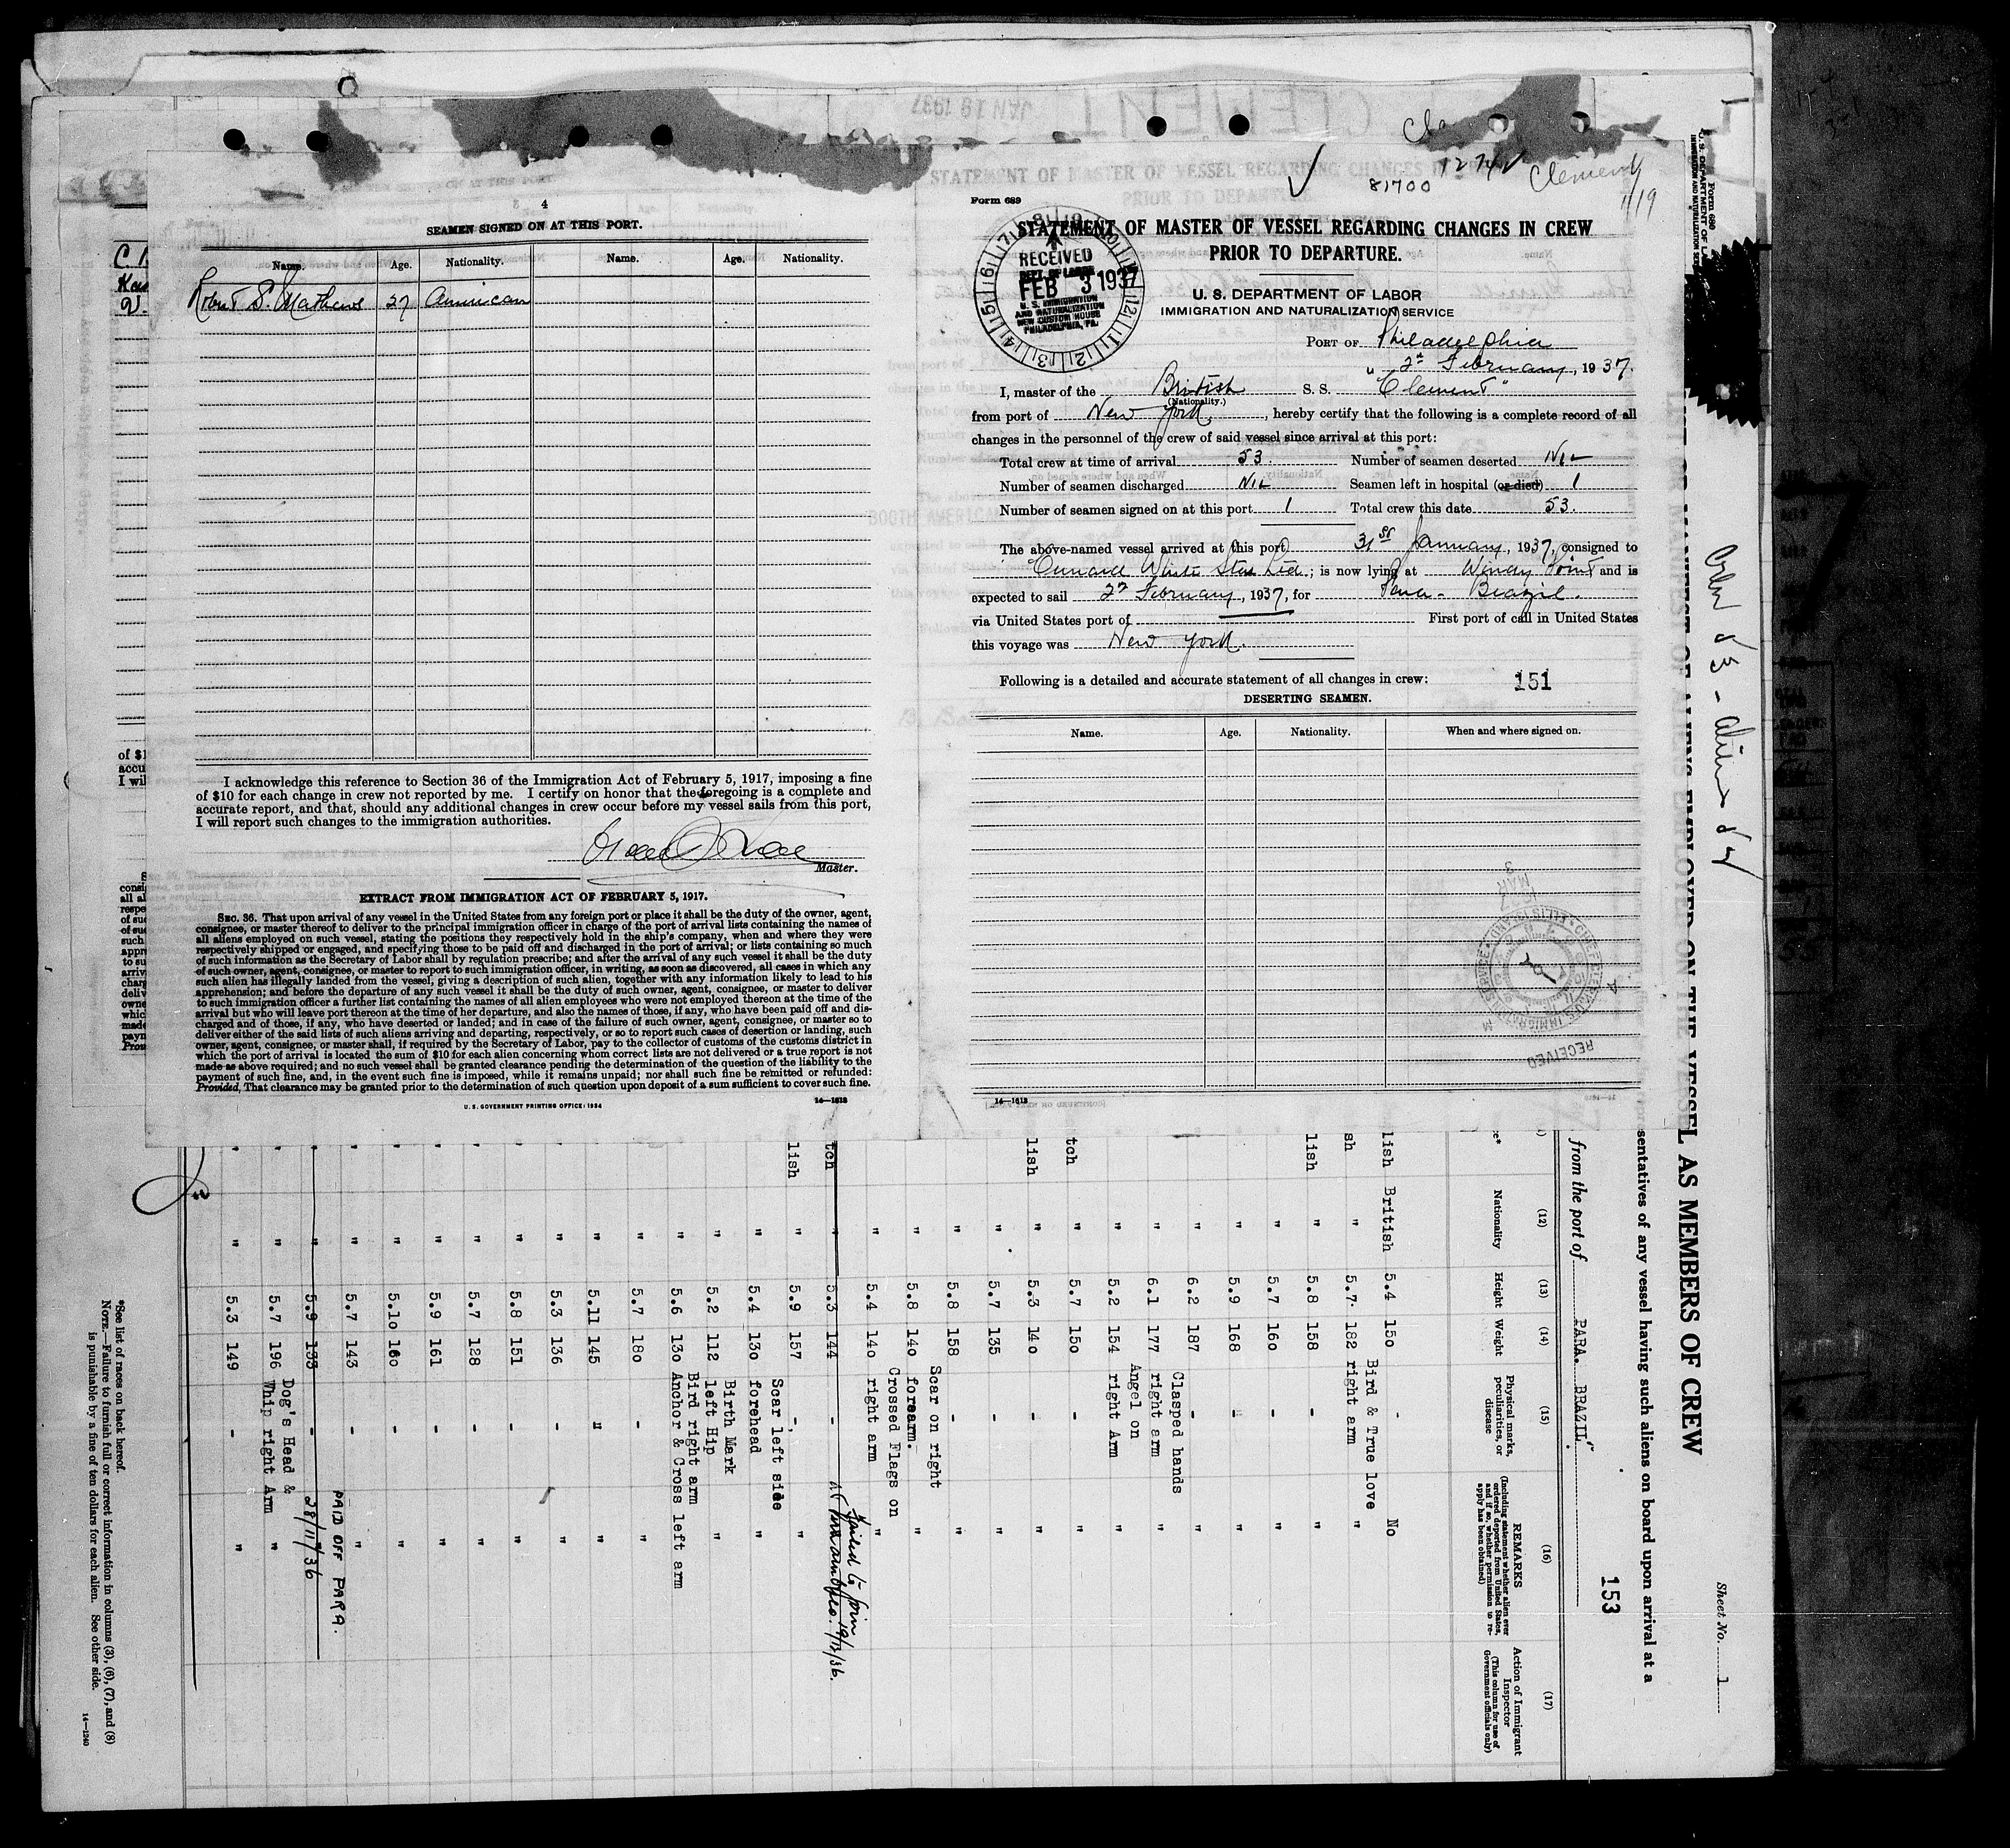 4
SEAMEN SIGNED ON AT THIS PORT.
Name. Age. Nationality. Name. Age. Nationality.
Robert S. Mathews 27 American
I acknowledge this reference to Section 36 of the Immigration Act of February 5, 1917, imposing a fine
of $10 for each change in crew not reported by me. I certify on honor that the foregoing is a complete and
accurate report, and that, should any additional changes in crew occur before my vessel sails from this port,
I will report such changes to the immigration authorities.
Master.
EXTRACT FROM IMMIGRATION ACT OF FEBRUARY 5, 1917.
SEC. 36. That upon arrival of any vessel in the United States from any foreign port or place it shall be the duty of the owner, agent,
consignee, or master thereof to deliver to the principal immigration officer in charge of the port of arrival lists containing the names of
all aliens employed on such vessel, stating the positions they respectively hold in the ship's company, when and where they were
respectively shipped or engaged, and specifying those to be paid off and discharged in the port of arrival; or lists containing so much
of such information as the Secretary of Labor shall by regulation prescribe; and after the arrival of any such vessel it shall be the duty
of such owner, agent, consignee, or master to report to such immigration officer, in writing, as soon as discovered, all cases in which any
such alien has illegally landed from the vessel, giving a description of such alien, together with any information likely to lead to his
apprehension; and before the departure of any such vessel it shall be the duty of such owner, agent, consignee, or master to deliver
to such immigration officer a further list containing the names of all alien employees who were not employed thereon at the time of the
arrival but who will leave port thereon at the time of her departure, and also the names of those, if any, who have been paid off and dis-
charged and of those, if any, who have deserted or landed; and in case of the failure of such owner, agent, consignee, or master so to
deliver either of the said lists of such aliens arriving and departing, respectively, or so to report such cases of desertion or landing, such
owner, agent, consignee, or master shall, if required by the Secretary of Labor, pay to the collector of customs of the customs district in
which the port of arrival is located the sum of $10 for each alien concerning whom correct lists are not delivered or a true report is not
made as above required; and no such vessel shall be granted clearance pending the determination of the question of the liability to the
payment of such fine, and, in the event such fine is imposed, while it remains unpaid; nor shall such fine be remitted or refunded:
Provided, That clearance may be granted prior to the determination of such question upon deposit of a sum sufficient to cover such fine.
U. S. GOVERNMENT PRINTING OFFICE: 1934 14—1613
81700
Clement
1/19
Form 689
STATEMENT OF MASTER OF VESSEL REGARDING CHANGES IN CREW
PRIOR TO DEPARTURE.
RECEIVED
DEPT. OF LABOR
FEB 3 1937
U. S. IMMIGRATION
AND NATURALIZATION
NEW CUSTOM HOUSE
PHILADELPHIA, PA.
U. S. DEPARTMENT OF LABOR
IMMIGRATION AND NATURALIZATION SERVICE
PORT OF Philadelphia
2nd February, 1937.
I, master of the British S. S. "Clement"
(Nationality.)
from port of New York, hereby certify that the following is a complete record of all
changes in the personnel of the crew of said vessel since arrival at this port:
Total crew at time of arrival 53. Number of seamen deserted NIL
Number of seamen discharged NIL Seamen left in hospital (or died) 1
Number of seamen signed on at this port 1 Total crew this date 53.
The above-named vessel arrived at this port 31st January, 1937, consigned to
Cunard White Star Ltd.; is now lying at Windy Point and is
expected to sail 2nd February, 1937, for Para - Brazil.
via United States port of First port of call in United States
this voyage was New York.
Following is a detailed and accurate statement of all changes in crew: 151
DESERTING SEAMEN.
Name. Age. Nationality. When and where signed on.
14—1613
Form 680
U. S. DEPARTMENT OF LA
IMMIGRATION AND NATURALIZATION SER
LIST OR MANIFEST OF ALIENS EMPLOYED ON THE VESSEL AS MEMBERS OF CREW
Sheet No. 1
sentatives of any vessel having such aliens on board upon arrival at a
from the port of PARA. BRAZIL 153
(12) (13) (14) (15) (16) (17)
Nationality Height Weight Physical marks, peculiarities, or disease
REMARKS
(Including statement whether alien ever ordered deported from United States, and if so, whether permission to re-apply has been obtained)
Action of Immigrant Inspector
(This column for use of Government officials only)
lish British 5.4 150 - No
sh " 5.7 182 Bird & True love right arm "
lish " 5.8 158 - "
" 5.7 160 - "
" 5.9 168 - "
" 6.2 187 - "
" 6.1 177 Clasped hands right arm "
" 5.2 154 Angel on right Arm "
tch " 5.7 150 - "
lish " 5.3 140 - "
" 5.7 135 - "
" 5.8 158 - "
" 5.8 140 Scar on right forearm. "
" 5.4 140 Crossed Flags on right arm "
tch " 5.3 144 - Failed to join at Pernambuco. 19/12/36.
lish " 5.9 157 - "
" 5.4 130 Scar left side forehead "
" 5.2 112 Birth Mark left Hip "
" 5.6 130 Bird right arm Anchor & Cross left arm
" 5.7 180 - "
" 5.11 145 " "
" 5.3 136 - "
" 5.8 151 - "
" 5.7 128 - "
" 5.9 161 - "
" 5.10 160 - "
" 5.7 143 - "
" 5.9 133 - PAID OFF PARA. 28/11/36
" 5.7 196 Dog's Head & Whip right Arm "
" 5.3 149 - "
*See list of races on back hereof.
NOTE.—Failure to furnish full or correct information in columns (3), (6), (7), and (8)
is punishable by a fine of ten dollars for each alien. See other side.
14—1240